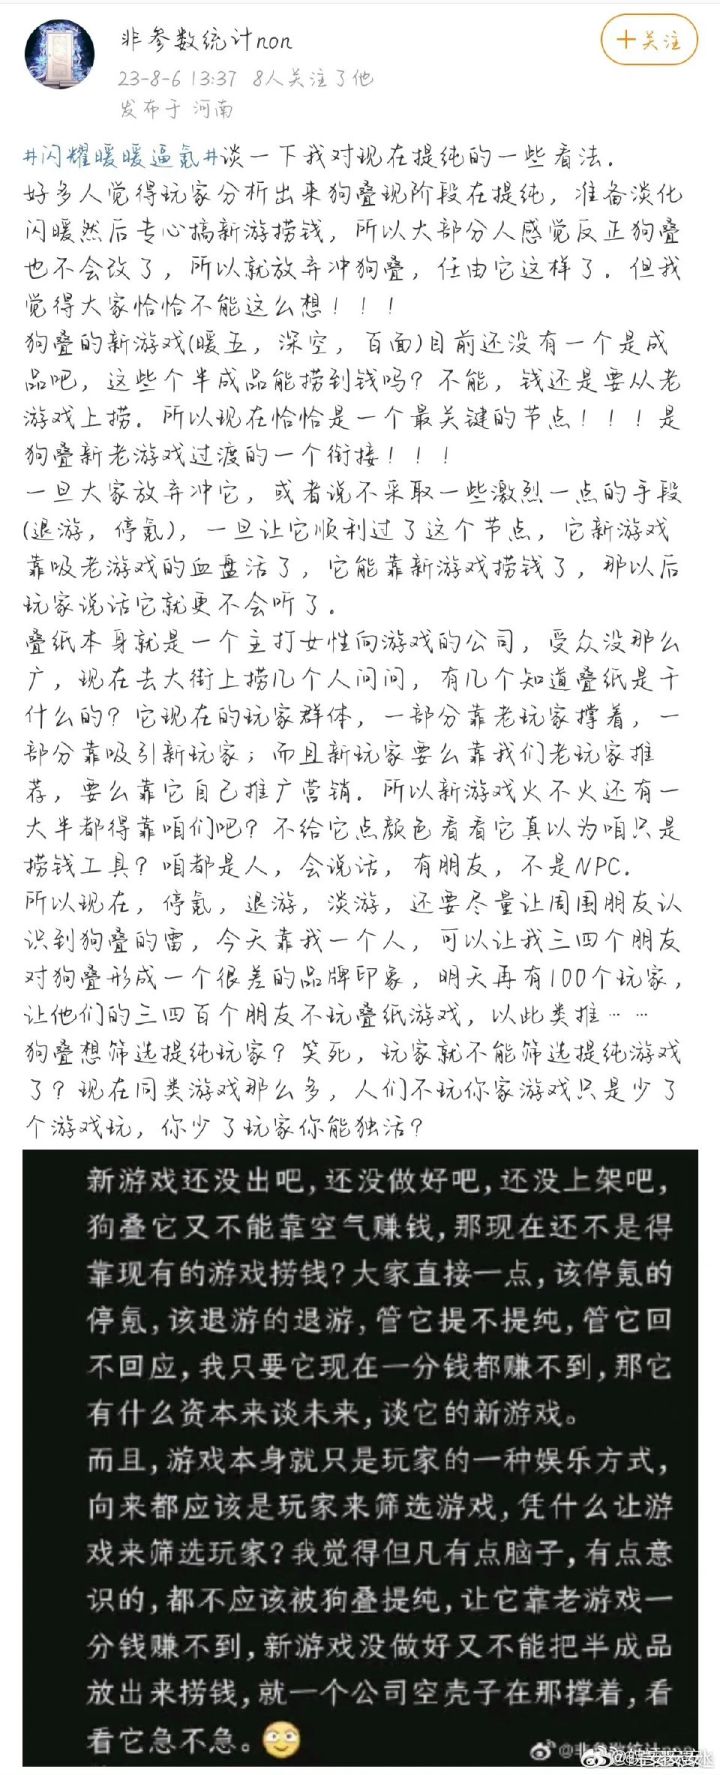 非参数统计non
+关注
23-8-6 13:37 8人关注了他
发布于 河南
#闪耀暖暖逼氪#谈一下我对现在提纯的一些看法.
好多人觉得玩家分析出来狗叠现阶段在提纯,准备淡化
闪暖然后专心搞新游捞钱,所以大部分人感觉反正狗叠
也不会改了,所以就放弃冲狗叠,任由它这样了.但我
觉得大家恰恰不能这么想!!!
狗叠的新游戏(暖五,深空,百面)目前还没有一个是成
品吧,这些个半成品能捞到钱吗?不能,钱还是要从老
游戏上捞.所以现在恰恰是一个最关键的节点!!!是
狗叠新老游戏过渡的一个衔接!!!
一旦大家放弃冲它,或者说不采取一些激烈一点的手段
(退游,停氪),一旦让它顺利过了这个节点,它新游戏
靠吸老游戏的血盘活了,它能靠新游戏捞钱了,那以后
玩家说话它就更不会听了.
叠纸本身就是一个主打女性向游戏的公司,受众没那么
广,现在去大街上捞几个人问问,有几个知道叠纸是干
什么的?它现在的玩家群体,一部分靠老玩家撑着,一
部分靠吸引新玩家;而且新玩家要么靠我们老玩家推
荐,要么靠它自己推广营销.所以新游戏火不火还有一
大半都得靠咱们吧?不给它点颜色看看它真以为咱只是
捞钱工具?咱都是人,会说话,有朋友,不是NPC.
所以现在,停氪,退游,淡游,还要尽量让周围朋友认
识到狗叠的雷,今天靠我一个人,可以让我三四个朋友
对狗叠形成一个很差的品牌印象,明天再有100个玩家,
让他们的三四百个朋友不玩叠纸游戏,以此类推……
狗叠想筛选提纯玩家?笑死,玩家就不能筛选提纯游戏
了?现在同类游戏那么多,人们不玩你家游戏只是少了
个游戏玩,你少了玩家你能独活?
新游戏还没出吧,还没做好吧,还没上架吧,
狗叠它又不能靠空气赚钱,那现在还不是得
靠现有的游戏捞钱?大家直接一点,该停氪的
停氪,该退游的退游,管它提不提纯,管它回
不回应,我只要它现在一分钱都赚不到,那它
有什么资本来谈未来,谈它的新游戏。
而且,游戏本身就只是玩家的一种娱乐方式,
向来都应该是玩家来筛选游戏,凭什么让游
戏来筛选玩家?我觉得但凡有点脑子,有点意
识的,都不应该被狗叠提纯,让它靠老游戏一
分钱赚不到,新游戏没做好又不能把半成品
放出来捞钱,就一个公司空壳子在那撑着,看
看它急不急。
@非参数统计non